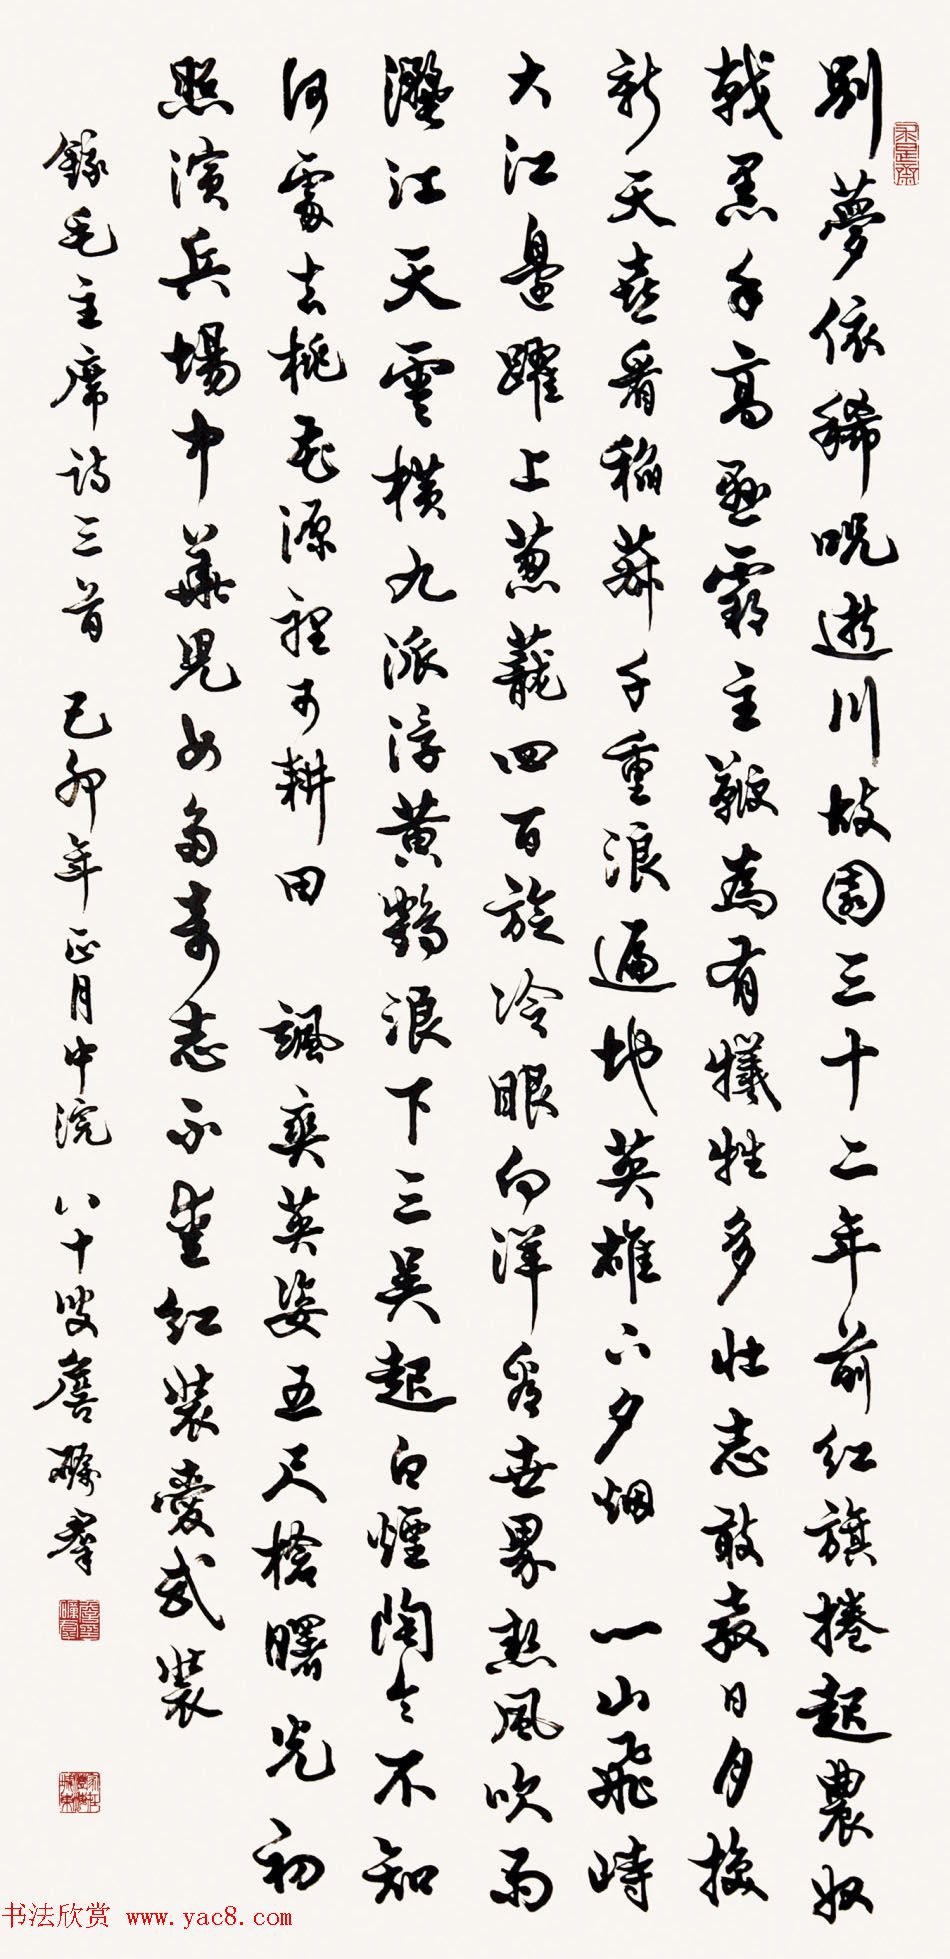 別夢依稀呪逝川故園三十二年前紅旗捲起農奴
戟黑手高懸霸主鞭為有犧牲多壯志敢教日月換
新天喜看稻菽千重浪遍地英雄下夕烟 一山飛峙
大江邊躍上蔥蘢四百旋冷眼向洋看世界熱風吹雨
灑江天雲橫九派浮黃鶴浪下三吳起白煙陶令不知
何處去桃花源裡可耕田 颯爽英姿五尺槍曙光初
照演兵場中華兒女多奇志不愛紅裝愛武裝
錄毛主席詩三首 己卯年正月中浣 八十叟詹礪羣
书法欣赏 www.yac8.com